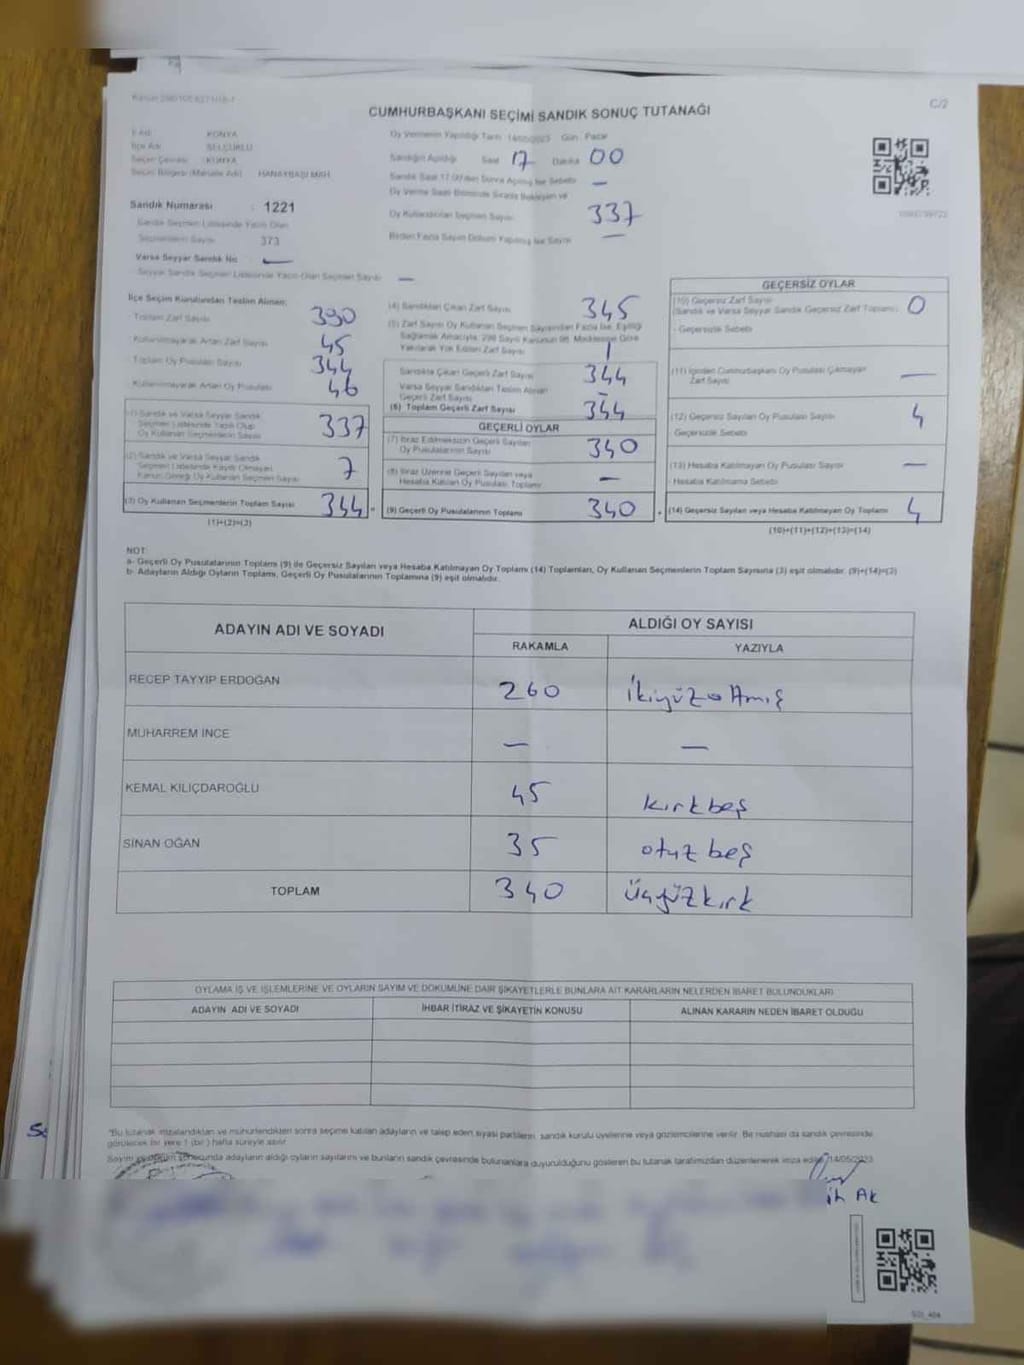 C/2
CUMHURBAŞKANI SEÇİMİ SANDIK SONUÇ TUTANAĞI
İl Adı : KONYA
İlçe Adı : SELÇUKLU
Seçim Çevresi : KONYA
Seçim Bölgesi (Mahalle Adı) : HANAYBAŞI MAH.
Sandık Numarası : 1221
Sandık Seçmen Listesinde Yazılı Olan
Seçmenlerin Sayısı : 373
Varsa Seyyar Sandık No : —
Seyyar Sandık Seçmen Listesinde Yazılı Olan Seçmen Sayısı : —
Oy Vermenin Yapıldığı Tarih 14/05/2023 Gün Pazar
Sandığın Açıldığı Saat 17 Dakika 00
Sandık Saat 17.00'den Sonra Açılmış İse Sebebi —
Oy Verme Saati Bitiminde Sırada Bekleyen ve
Oy Kullandırılan Seçmen Sayısı 337
Birden Fazla Sayım Döküm Yapılmış İse Sayısı —
İlçe Seçim Kurulundan Teslim Alınan:
- Toplam Zarf Sayısı 390
- Kullanılmayarak Artan Zarf Sayısı 45
- Toplam Oy Pusulası Sayısı 344
- Kullanılmayarak Artan Oy Pusulası 46
(1) Sandık ve Varsa Seyyar Sandık
Seçmen Listesinde Yazılı Olup
Oy Kullanan Seçmenlerin Sayısı 337
(2) Sandık ve Varsa Seyyar Sandık
Seçmen Listesinde Kayıtlı Olmayan
Kanun Gereği Oy Kullanan Seçmenlerin Sayısı 7
(3) Oy Kullanan Seçmenlerin Toplam Sayısı 344 =
(1)+(2)=(3)
(4) Sandıktan Çıkan Zarf Sayısı 345
(5) Zarf Sayısı Oy Kullanan Seçmen Sayısından Fazla İse, Eşitliği
Sağlamak Amacıyla, 298 Sayılı Kanunun 98. Maddesine Göre
Yakılarak Yok Edilen Zarf Sayısı 1
Sandıkta Çıkan Geçerli Zarf Sayısı 344
Varsa Seyyar Sandıktan Teslim Alınan
Geçerli Zarf Sayısı —
(6) Toplam Geçerli Zarf Sayısı 344
GEÇERLİ OYLAR
(7) İtiraz Edilmeksizin Geçerli Sayılan
Oy Pusulalarının Sayısı 340
(8) İtiraz Üzerine Geçerli Sayılan veya
Hesaba Katılan Oy Pusulaları Toplamı —
(9) Geçerli Oy Pusulalarının Toplamı 340 +
GEÇERSİZ OYLAR
(10) Geçersiz Zarf Sayısı
(Sandık ve Varsa Seyyar Sandık Geçersiz Zarf Toplamı) 0
- Geçersizlik Sebebi
(11) İçinden Cumhurbaşkanı Oy Pusulası Çıkmayan
Zarf Sayısı —
(12) Geçersiz Sayılan Oy Pusulası Sayısı 4
Geçersizlik Sebebi
(13) Hesaba Katılmayan Oy Pusulası Sayısı —
- Hesaba Katılmama Sebebi
(14) Geçersiz Sayılan veya Hesaba Katılmayan Oy Toplamı 4
(10)+(11)+(12)+(13)=(14)
NOT:
a- Geçerli Oy Pusulalarının Toplamı (9) ile Geçersiz Sayılan veya Hesaba Katılmayan Oy Toplamı (14) Toplamları, Oy Kullanan Seçmenlerin Toplam Sayısına (3) eşit olmalıdır. (9)+(14)=(3)
b- Adayların Aldığı Oyların Toplamı, Geçerli Oy Pusulalarının Toplamına (9) eşit olmalıdır.
ADAYIN ADI VE SOYADI ALDIĞI OY SAYISI
RAKAMLA YAZIYLA
RECEP TAYYIP ERDOĞAN 260 ikiyüzatmış
MUHARREM İNCE — —
KEMAL KILIÇDAROĞLU 45 kırkbeş
SİNAN OĞAN 35 otuz beş
TOPLAM 340 üçyüzkırk
OYLAMA İŞ VE İŞLEMLERİNE VE OYLARIN SAYIM VE DÖKÜMÜNE DAİR ŞİKAYETLERLE BUNLARA AİT KARARLARIN NELERDEN İBARET BULUNDUKLARI
ADAYIN ADI VE SOYADI İHBAR İTİRAZ VE ŞİKAYETİN KONUSU ALINAN KARARIN NEDEN İBARET OLDUĞU
"Bu tutanak imzalandıktan ve mühürlendikten sonra seçime katılan adayların ve talep eden siyasi partilerin, sandık kurulu üyelerine veya gözlemcilerine verilir. Bir nüshası da sandık çevresinde
görülecek bir yere 1 (bir) hafta süreyle asılır.
Sayım ve döküm sonucunda adayların aldığı oyların sayılarını ve bunların sandık çevresinde bulunanlara duyurulduğunu gösteren bu tutanak tarafımızdan düzenlenerek imza edildi. 14/05/2023
ih Ak